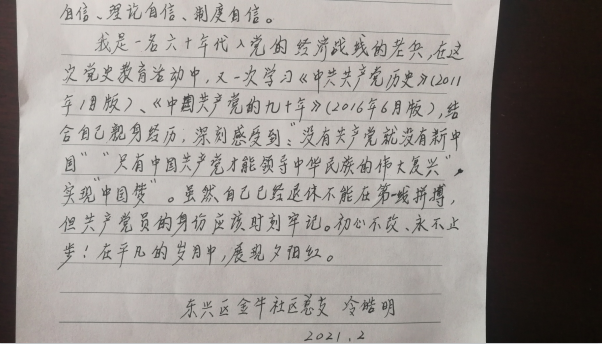 自信、理论自信、制度自信。
我是一名六十年代入党的经济战线的老兵,在这
次党史教育活动中,又一次学习《中共共产党历史》(2011
年1月版)、《中国共产党的九十年》(2016年6月版),结
合自己亲身经历,深刻感受到:"没有共产党就没有新中
国""只有中国共产党才能领导中华民族的伟大复兴",
实现"中国梦"。虽然自己已经退休不能在第一线拼搏,
但共产党员的身份应该时刻牢记。初心不改、永不止
步!在平凡的岁月中,展现夕阳红。
东兴区金牛社区总支 冷皓明
2021.2